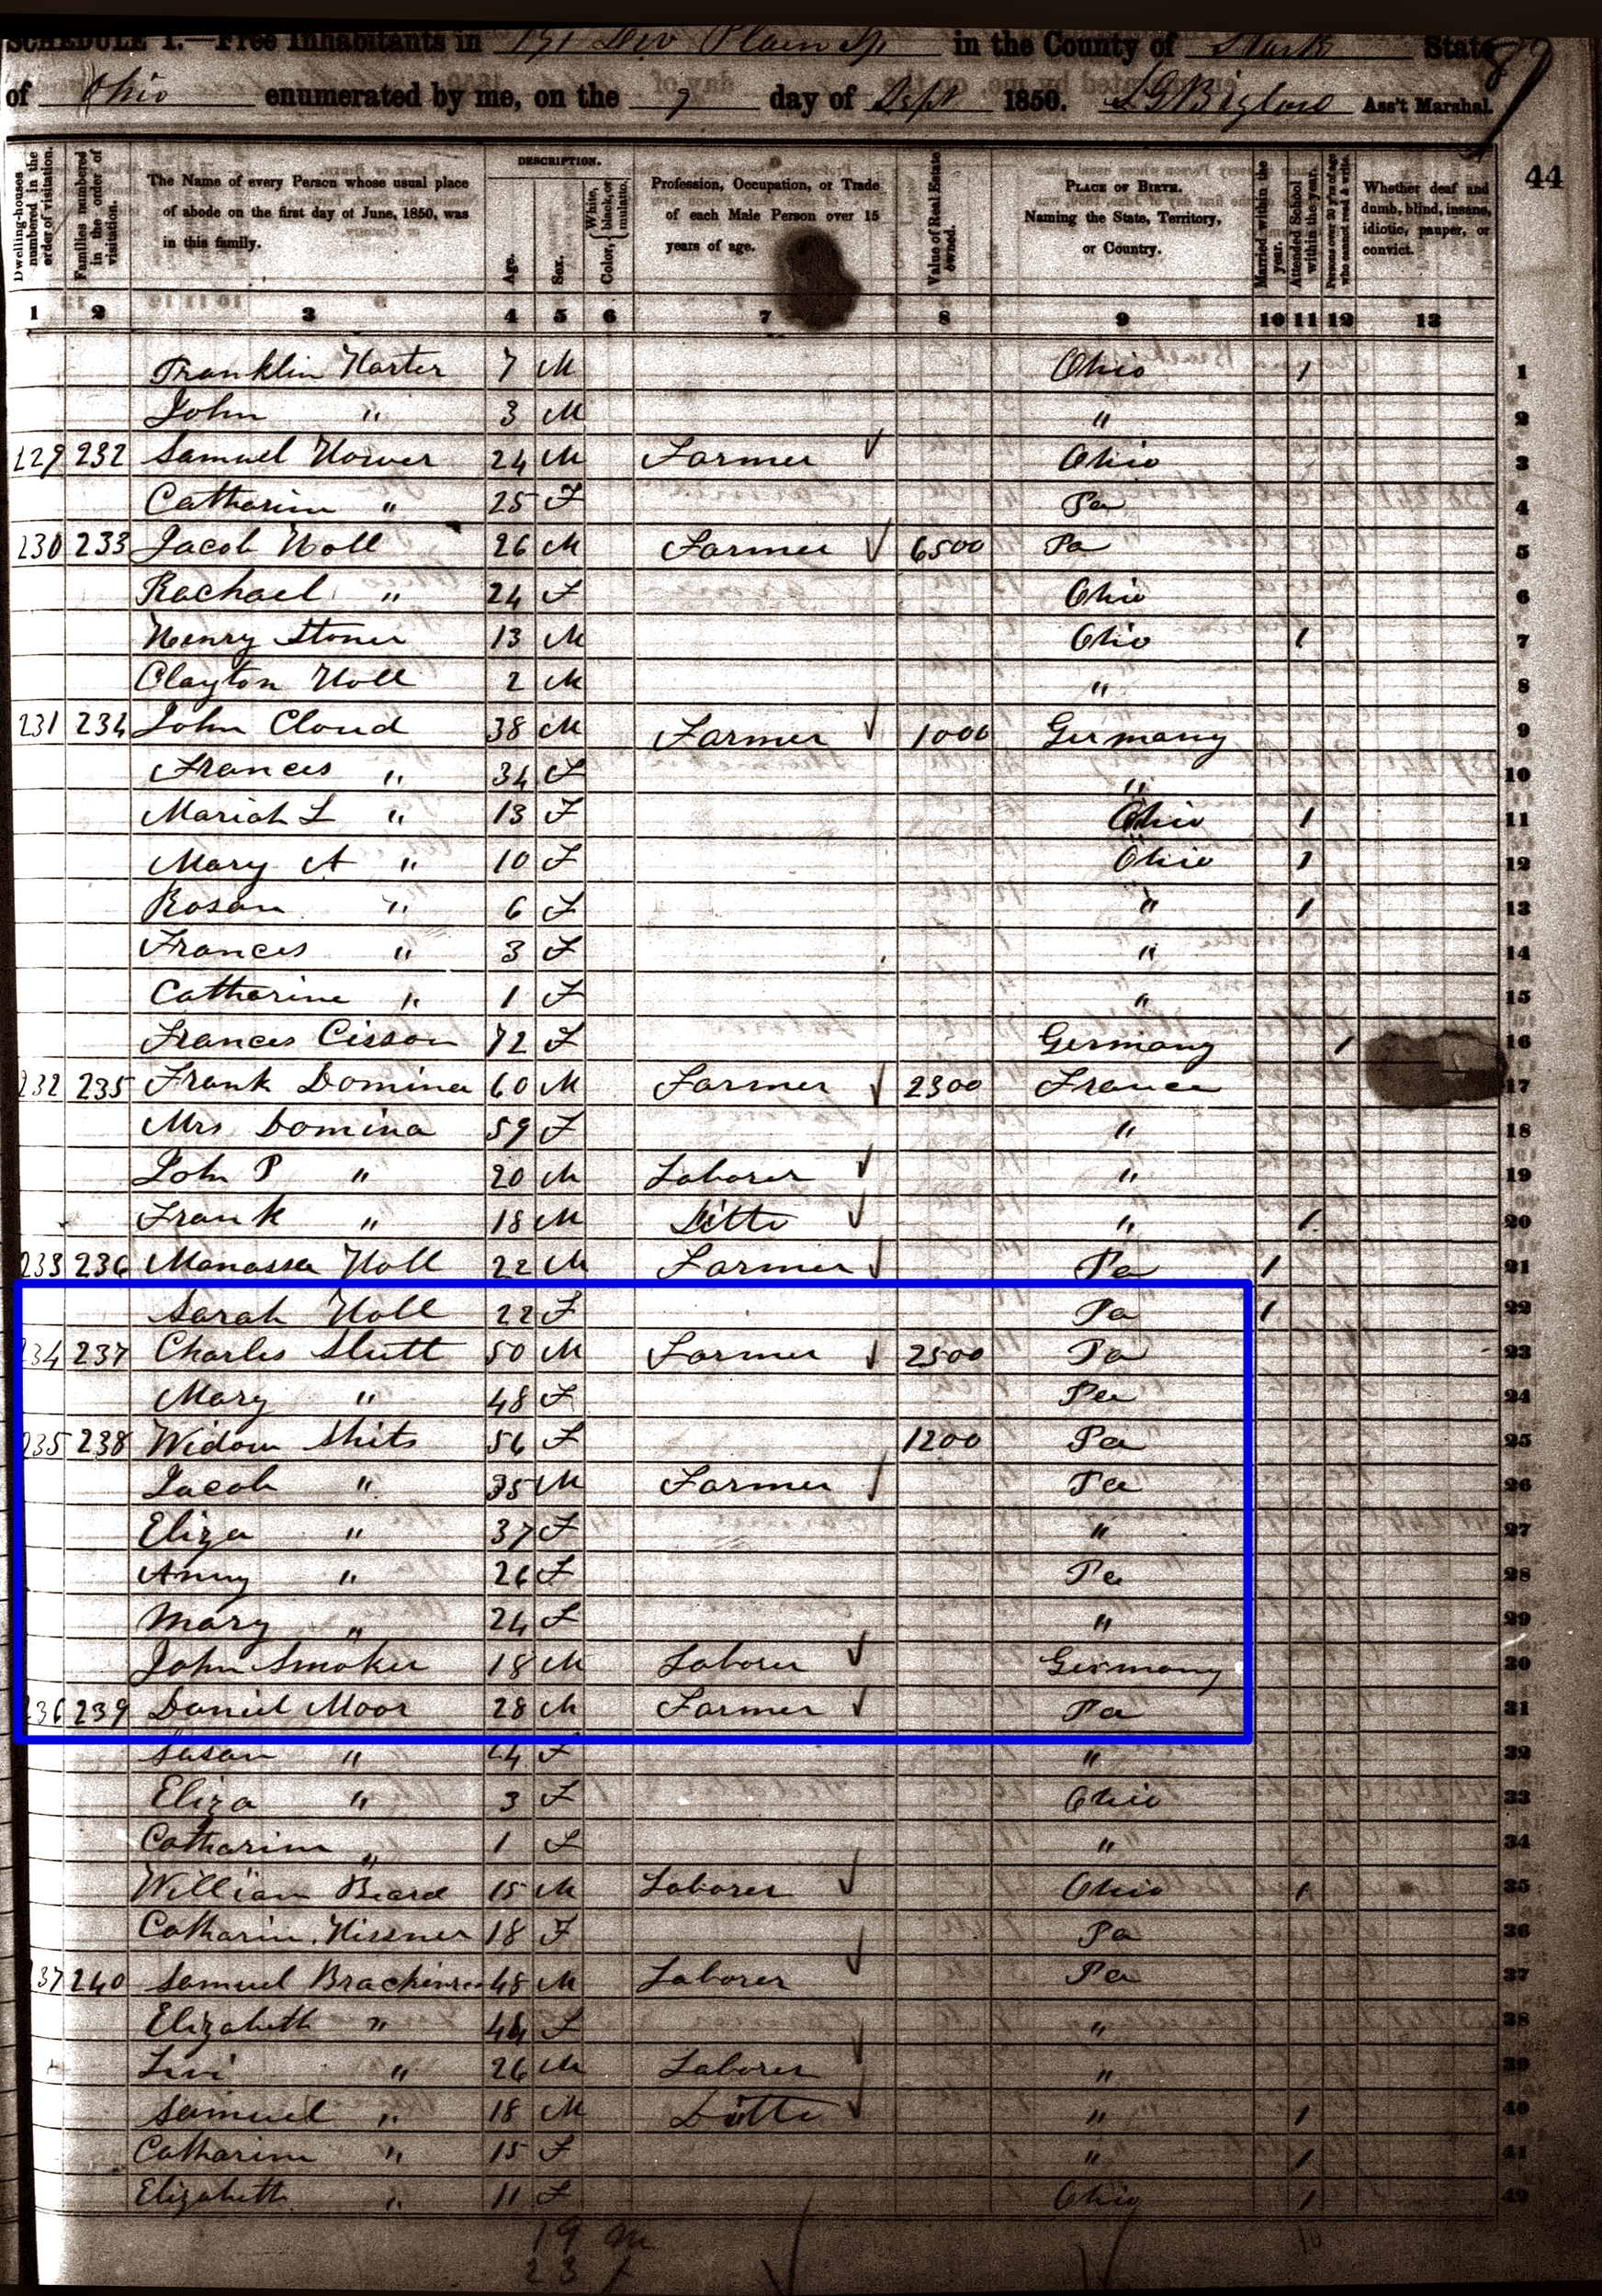 SCHEDULE I.—Free Inhabitants in 1st Div Plain Tp in the County of Stark State
of Ohio enumerated by me, on the 9 day of Sept 1850. Ass't Marshal.
44
Dwelling-houses numbered in the order of visitation.
Families numbered in the order of visitation.
The Name of every Person whose usual place of abode on the first day of June, 1850, was in this family.
DESCRIPTION.
Age.
Sex.
Color, White, black, or mulatto.
Profession, Occupation, or Trade of each Male Person over 15 years of age.
Value of Real Estate owned.
PLACE OF BIRTH. Naming the State, Territory, or Country.
Married within the year.
Attended School within the year.
Persons over 20 y'rs of age who cannot read & write.
Whether deaf and dumb, blind, insane, idiotic, pauper, or convict.
1 2 3 4 5 6 7 8 9 10 11 12 13
Franklin Harter 7 M Ohio 1 1
John " 3 M " 2
229 232 Samuel Hower 24 M Farmer Ohio 3
Catharin " 25 F Pa 4
230 233 Jacob Holl 26 M Farmer 6500 Pa 5
Rachael " 24 F Ohio 6
Henry Stoner 13 M Ohio 1 7
Clayton Holl 2 M " 8
231 234 John Cloud 38 M Farmer 1000 Germany 9
Frances " 34 F " 10
Mariah L " 13 F Ohio 1 11
Mary A " 10 F Ohio 1 12
Rosan " 6 F " 1 13
Frances " 3 F " 14
Catharine " 1 F " 15
Frances Cisson 72 F Germany 1 16
232 235 Frank Domina 60 M Farmer 2300 France 17
Mrs Domina 59 F " 18
John P " 20 M Laborer " 19
Frank " 18 M Ditto " 1 20
233 236 Manassa Holl 22 M Farmer Pa 1 21
Sarah Holl 22 F Pa 1 22
234 237 Charles Slutt 50 M Farmer 2500 Pa 23
Mary " 48 F Pa 24
235 238 Widow Shits 56 F 1200 Pa 25
Jacob " 35 M Farmer Pa 26
Eliza " 37 F " 27
Anny " 26 F Pa 28
Mary " 24 F " 29
John Smoker 18 M Laborer Germany 30
236 239 Daniel Moor 28 M Farmer Pa 31
Susan " 24 F " 32
Eliza " 3 F Ohio 33
Catharin " 1 F " 34
William Beard 15 M Laborer Ohio 1 35
Catharin Hissner 18 F Pa 36
237 240 Samuel 48 M Laborer Pa 37
Elizabeth " F " 38
Levi " 26 M Laborer " 39
Samuel " 18 M Ditto " 1 40
Catharin " 15 F " 1 41
Elizabeth " 11 F Ohio 1 42
19 m
23 f